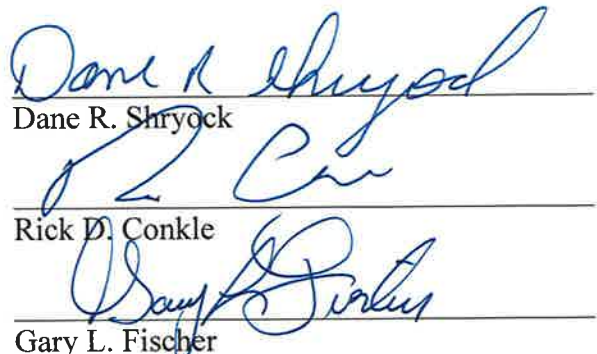 Dane R Shryock
Dane R. Shryock
Rick D. Conkle
Gary L. Fischer
Gary L. Fischer